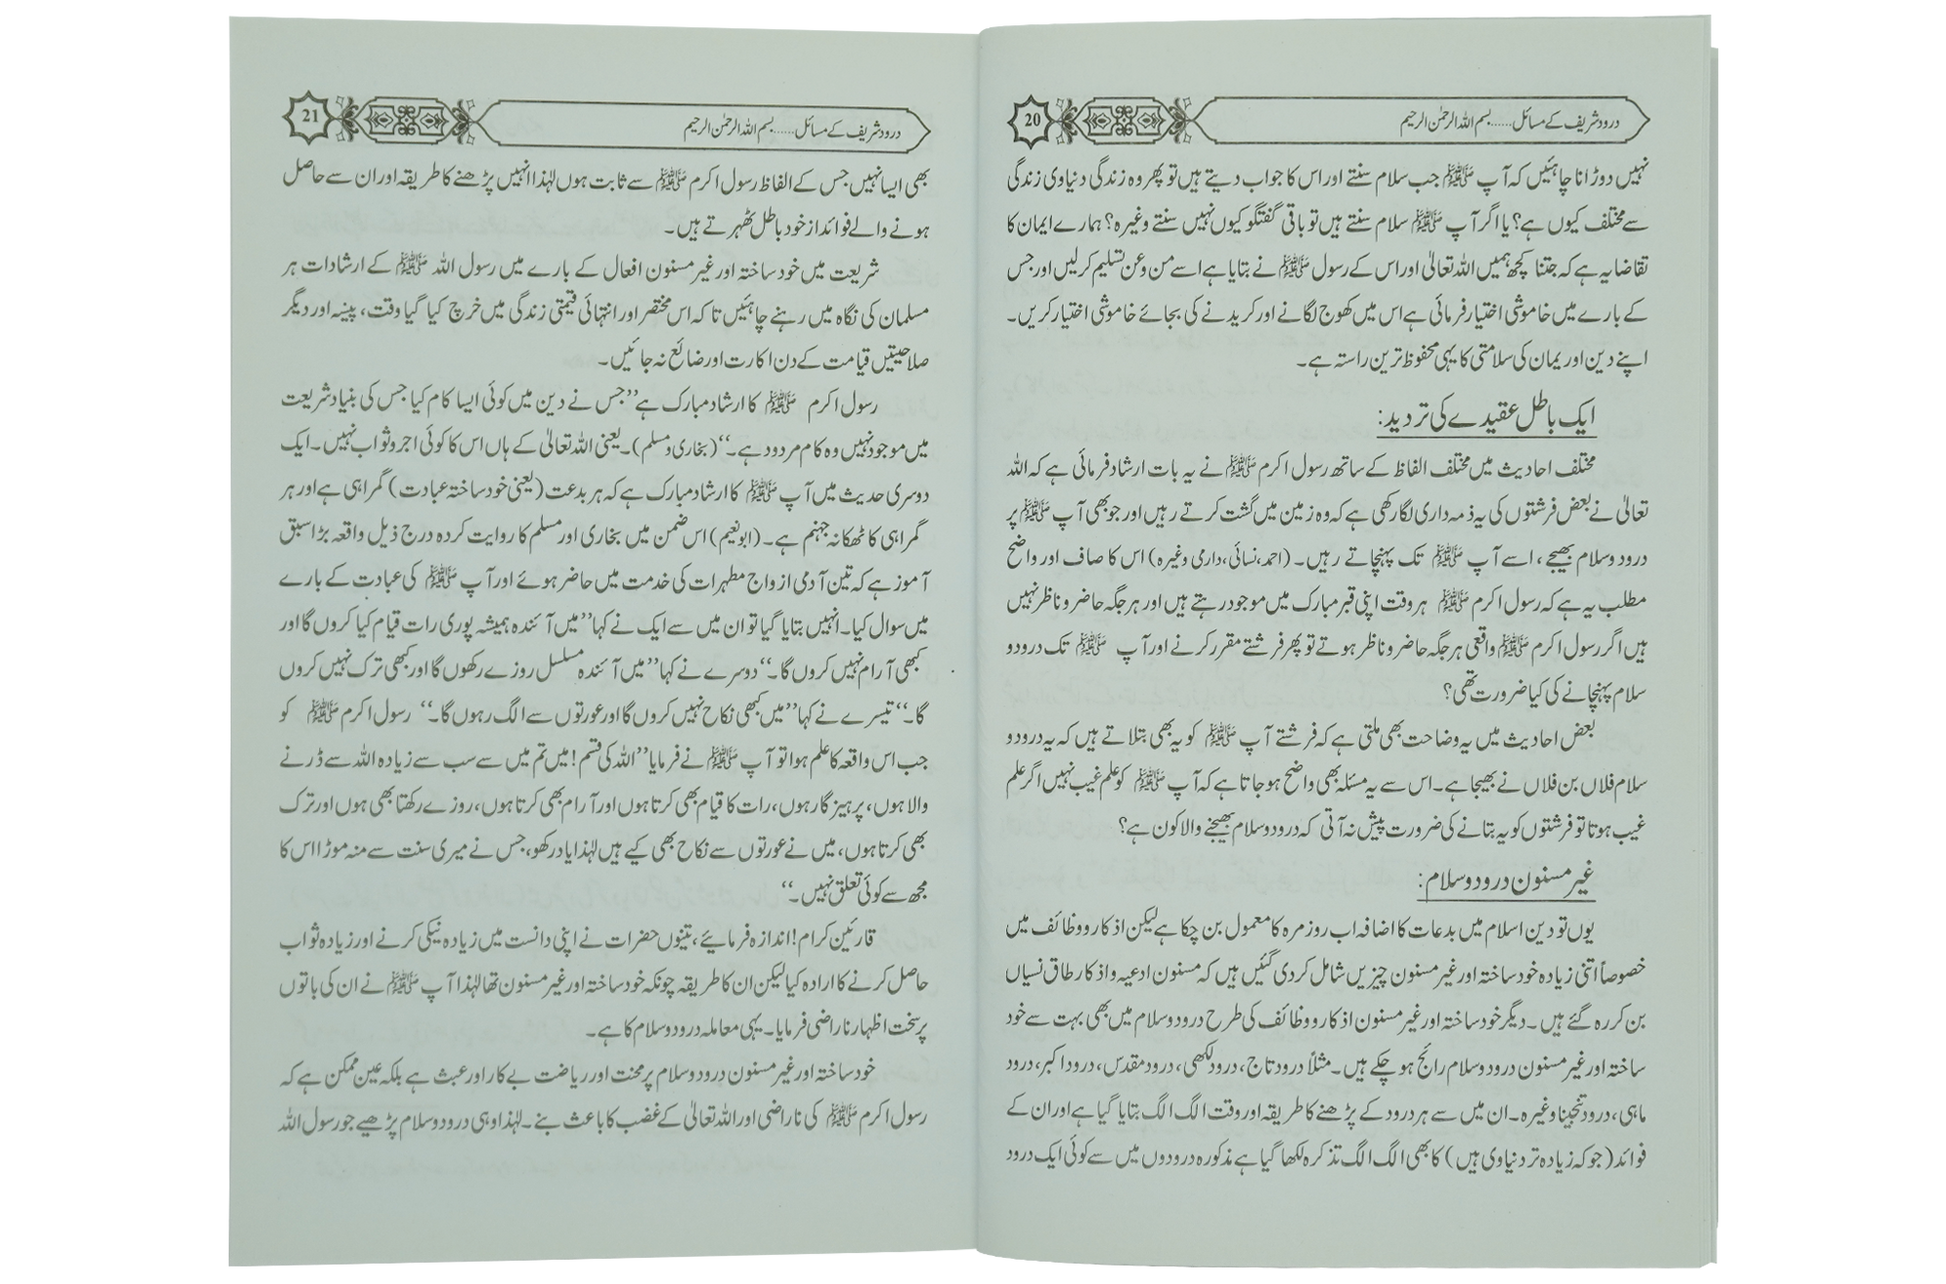 درود شریف کے مسائل......بسم اللہ الرحمٰن الرحیم
20
نہیں دوڑانا چاہئیں کہ آپ ﷺ جب سلام سنتے اور اس کا جواب دیتے ہیں تو پھر وہ زندگی دنیاوی زندگی
سے مختلف کیوں ہے؟ یا اگر آپ ﷺ سلام سنتے ہیں تو باقی گفتگو کیوں نہیں سنتے وغیرہ؟ ہمارے ایمان کا
تقاضا یہ ہے کہ جتنا کچھ ہمیں اللہ تعالیٰ اور اس کے رسول ﷺ نے بتایا ہے اسے من و عن تسلیم کرلیں اور جس
کے بارے میں خاموشی اختیار فرمائی ہے اس میں کھوج لگانے اور کریدنے کی بجائے خاموشی اختیار کریں۔
اپنے دین اور یمان کی سلامتی کا یہی محفوظ ترین راستہ ہے۔
ایک باطل عقیدے کی تردید:
مختلف احادیث میں مختلف الفاظ کے ساتھ رسول اکرم ﷺ نے یہ بات ارشاد فرمائی ہے کہ اللہ
تعالیٰ نے بعض فرشتوں کی یہ ذمہ داری لگا رکھی ہے کہ وہ زمین میں گشت کرتے رہیں اور جو بھی آپ ﷺ پر
درود و سلام بھیجے، اسے آپ ﷺ تک پہنچاتے رہیں۔ (احمد، نسائی، دارمی وغیرہ) اس کا صاف اور واضح
مطلب یہ ہے کہ رسول اکرم ﷺ ہر وقت اپنی قبر مبارک میں موجود رہتے ہیں اور ہر جگہ حاضر و ناظر نہیں
ہیں اگر رسول اکرم ﷺ واقعی ہر جگہ حاضر و ناظر ہوتے تو پھر فرشتے مقرر کرنے اور آپ ﷺ تک درود و
سلام پہنچانے کی کیا ضرورت تھی؟
بعض احادیث میں یہ وضاحت بھی ملتی ہے کہ فرشتے آپ ﷺ کو یہ بھی بتلاتے ہیں کہ یہ درود و
سلام فلاں بن فلاں نے بھیجا ہے۔ اس سے یہ مسئلہ بھی واضح ہو جاتا ہے کہ آپ ﷺ کو علم غیب نہیں اگر علم
غیب ہوتا تو فرشتوں کو یہ بتانے کی ضرورت پیش نہ آتی کہ درود و سلام بھیجنے والا کون ہے؟
غیر مسنون درود و سلام:
یوں تو دین اسلام میں بدعات کا اضافہ اب روز مرہ کا معمول بن چکا ہے لیکن اذکار و وظائف میں
خصوصاً اتنی زیادہ خود ساختہ اور غیر مسنون چیزیں شامل کردی گئیں ہیں کہ مسنون ادعیہ و اذکار طاق نسیاں
بن کر رہ گئے ہیں۔ دیگر خود ساختہ اور غیر مسنون اذکار و وظائف کی طرح درود و سلام میں بھی بہت سے خود
ساختہ اور غیر مسنون درود و سلام رائج ہو چکے ہیں۔ مثلاً درود تاج، درود لکھی، درود مقدس، درود اکبر، درود
ماہی، درود تنجینا وغیرہ۔ ان میں سے ہر درود کے پڑھنے کا طریقہ اور وقت الگ الگ بتایا گیا ہے اور ان کے
فوائد (جو کہ زیادہ تر دنیاوی ہیں) کا بھی الگ الگ تذکرہ لکھا گیا ہے مذکورہ درودوں میں سے کوئی ایک درود
درود شریف کے مسائل......بسم اللہ الرحمٰن الرحیم
21
بھی ایسا نہیں جس کے الفاظ رسول اکرم ﷺ سے ثابت ہوں لہٰذا انہیں پڑھنے کا طریقہ اور ان سے حاصل
ہونے والے فوائد از خود باطل ٹھہرتے ہیں۔
شریعت میں خود ساختہ اور غیر مسنون افعال کے بارے میں رسول اللہ ﷺ کے ارشادات ہر
مسلمان کی نگاہ میں رہنے چاہئیں تاکہ اس مختصر اور انتہائی قیمتی زندگی میں خرچ کیا گیا وقت، پیسہ اور دیگر
صلاحیتیں قیامت کے دن اکارت اور ضائع نہ جائیں۔
رسول اکرم ﷺ کا ارشاد مبارک ہے ’’جس نے دین میں کوئی ایسا کام کیا جس کی بنیاد شریعت
میں موجود نہیں وہ کام مردود ہے۔‘‘ (بخاری و مسلم)۔ یعنی اللہ تعالیٰ کے ہاں اس کا کوئی اجر و ثواب نہیں۔ ایک
دوسری حدیث میں آپ ﷺ کا ارشاد مبارک ہے کہ ہر بدعت (یعنی خود ساختہ عبادت) گمراہی ہے اور ہر
گمراہی کا ٹھکانہ جہنم ہے۔ (ابو نعیم) اس ضمن میں بخاری اور مسلم کا روایت کردہ درج ذیل واقعہ بڑا سبق
آموز ہے کہ تین آدمی ازواج مطہرات کی خدمت میں حاضر ہوئے اور آپ ﷺ کی عبادت کے بارے
میں سوال کیا۔ انہیں بتایا گیا تو ان میں سے ایک نے کہا ’’میں آئندہ ہمیشہ پوری رات قیام کیا کروں گا اور
کبھی آرام نہیں کروں گا۔‘‘ دوسرے نے کہا ’’میں آئندہ مسلسل روزے رکھوں گا اور کبھی ترک نہیں کروں
گا۔‘‘ تیسرے نے کہا ’’میں کبھی نکاح نہیں کروں گا اور عورتوں سے الگ رہوں گا۔‘‘ رسول اکرم ﷺ کو
جب اس واقعہ کا علم ہوا تو آپ ﷺ نے فرمایا ’’اللہ کی قسم! میں تم میں سے سب سے زیادہ اللہ سے ڈرنے
والا ہوں، پرہیزگار ہوں، رات کا قیام بھی کرتا ہوں اور آرام بھی کرتا ہوں، روزے رکھتا بھی ہوں اور ترک
بھی کرتا ہوں، میں نے عورتوں سے نکاح بھی کیے ہیں لہٰذا یاد رکھو، جس نے میری سنت سے منہ موڑا اس کا
مجھ سے کوئی تعلق نہیں۔‘‘
قارئین کرام! اندازہ فرمائیے، تینوں حضرات نے اپنی دانست میں زیادہ نیکی کرنے اور زیادہ ثواب
حاصل کرنے کا ارادہ کیا لیکن ان کا طریقہ چونکہ خود ساختہ اور غیر مسنون تھا لہٰذا آپ ﷺ نے ان کی باتوں
پر سخت اظہار ناراضی فرمایا۔ یہی معاملہ درود و سلام کا ہے۔
خود ساختہ اور غیر مسنون درود و سلام پر محنت اور ریاضت بے کار اور عبث ہے بلکہ عین ممکن ہے کہ
رسول اکرم ﷺ کی ناراضی اور اللہ تعالیٰ کے غضب کا باعث بنے۔ لہٰذا وہی درود و سلام پڑھیے جو رسول اللہ